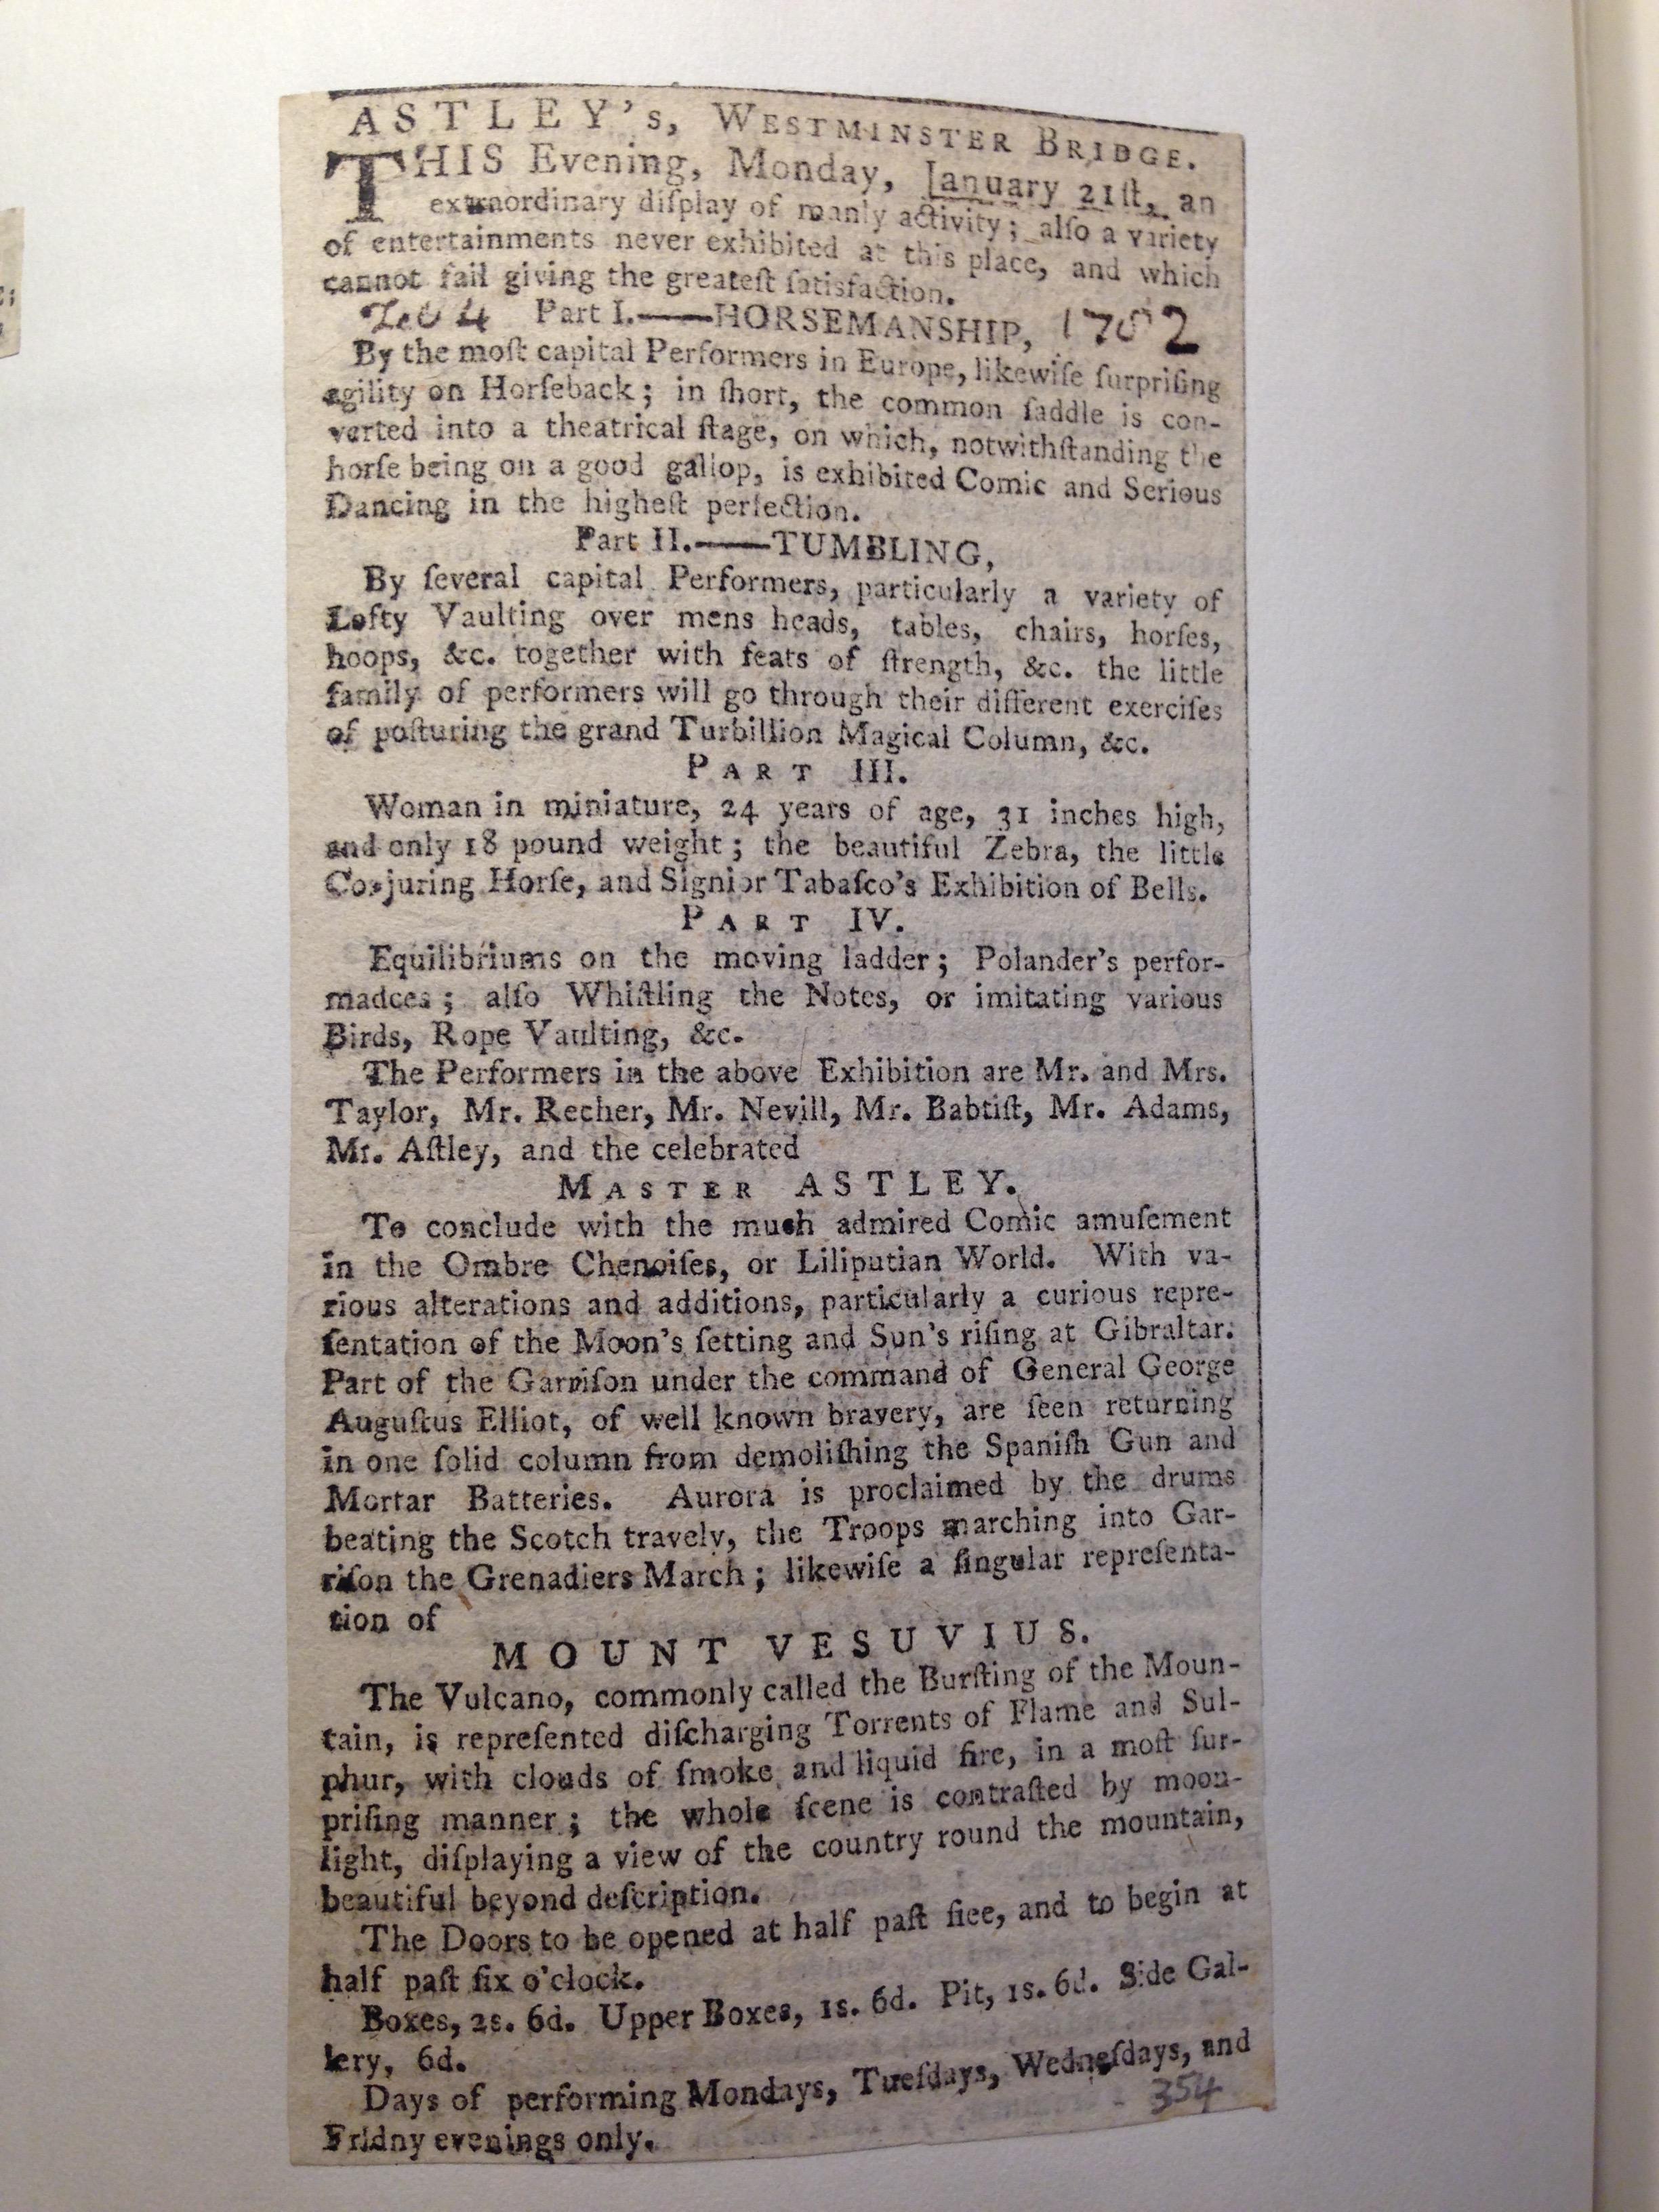 ASTLEY's, WESTMINSTER BRIDGE.
THIS Evening, Monday, January 21ſt, an
extraordinary diſplay of manly activity; alſo a variety
of entertainments never exhibited at this place, and which
cannot fail giving the greateſt ſatisfaction.
Part I.——HORSEMANSHIP, 1782
By the moſt capital Performers in Europe, likewiſe ſurpriſing
agility on Horſeback; in ſhort, the common ſaddle is con-
verted into a theatrical ſtage, on which, notwithſtanding the
horſe being on a good gallop, is exhibited Comic and Serious
Dancing in the higheſt perfection.
Part II.——TUMBLING,
By ſeveral capital Performers, particularly a variety of
Lofty Vaulting over mens heads, tables, chairs, horſes,
hoops, &c. together with feats of ſtrength, &c. the little
family of performers will go through their different exerciſes
of poſturing the grand Turbillion Magical Column, &c.
PART III.
Woman in miniature, 24 years of age, 31 inches high,
and only 18 pound weight; the beautiful Zebra, the little
Conjuring Horſe, and Signior Tabaſco's Exhibition of Bells.
PART IV.
Equilibriums on the moving ladder; Polander's perfor-
madces; alſo Whiſtling the Notes, or imitating various
Birds, Rope Vaulting, &c.
The Performers in the above Exhibition are Mr. and Mrs.
Taylor, Mr. Recher, Mr. Nevill, Mr. Babtiſt, Mr. Adams,
Mr. Aſtley, and the celebrated
MASTER ASTLEY.
To conclude with the much admired Comic amuſement
in the Ombre Chenoiſes, or Liliputian World. With va-
rious alterations and additions, particularly a curious repre-
ſentation of the Moon's ſetting and Sun's riſing at Gibraltar.
Part of the Garriſon under the command of General George
Auguſtus Elliot, of well known bravery, are ſeen returning
in one ſolid column from demoliſhing the Spaniſh Gun and
Mortar Batteries. Aurora is proclaimed by the drums
beating the Scotch travely, the Troops marching into Gar-
riſon the Grenadiers March; likewiſe a ſingular repreſenta-
tion of
MOUNT VESUVIUS.
The Vulcano, commonly called the Burſting of the Moun-
tain, is repreſented diſcharging Torrents of Flame and Sul-
phur, with clouds of ſmoke and liquid fire, in a moſt ſur-
priſing manner; the whole ſcene is contraſted by moon-
light, diſplaying a view of the country round the mountain,
beautiful beyond deſcription.
The Doors to be opened at half paſt fiee, and to begin at
half paſt ſix o'clock.
Boxes, 2s. 6d. Upper Boxes, 1s. 6d. Pit, 1s. 6d. Side Gal-
lery, 6d.
Days of performing Mondays, Tueſdays, Wedneſdays, and
Fridny evenings only.
354